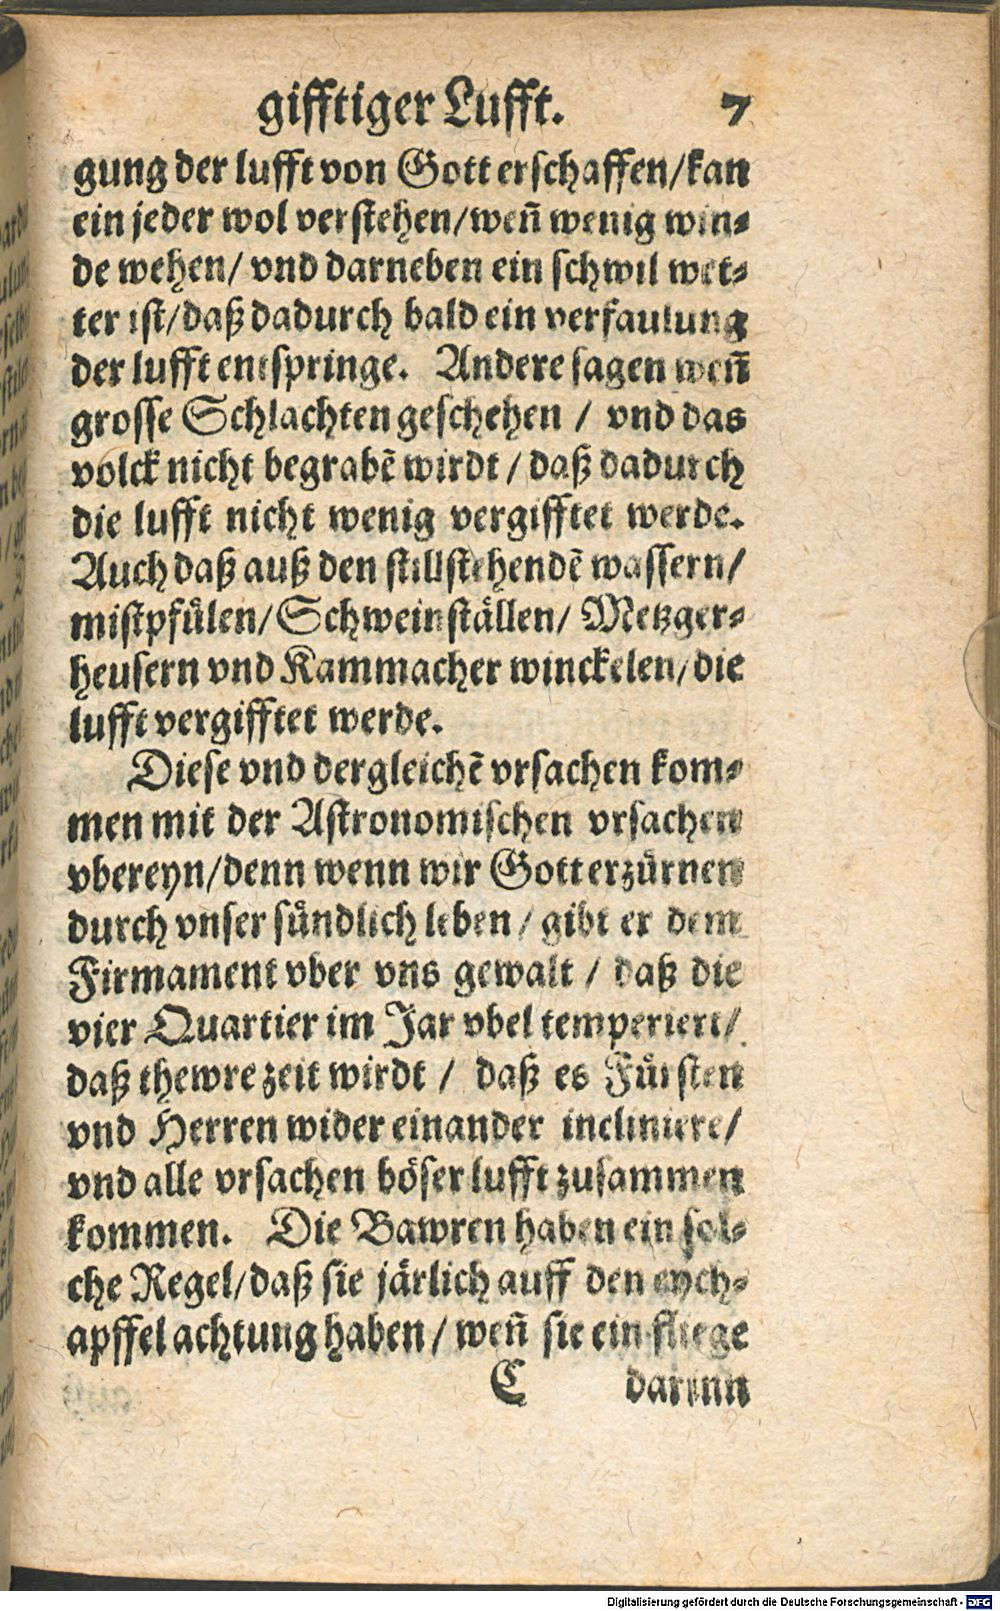 gifftiger Lufft. 7
gung der lufft von Gott erschaffen/kan
ein jeder wol verstehen/weñ wenig win⸗
de wehen/ vnd darneben ein schwil wet⸗
ter ist/daß dadurch bald ein verfaulung
der lufft entspringe. Andere sagen weñ
grosse Schlachten geschehen / vnd das
volck nicht begrabẽ wirdt / daß dadurch
die lufft nicht wenig vergifftet werde.
Auch daß auß den stillstehendẽ wassern/
mistpfůlen/Schweinställen/ Metzger⸗
heusern vnd Kammacher winckelen/die
lufft vergifftet werde.
Diese vnd dergleichẽ vrsachen kom⸗
men mit der Astronomischen vrsachen
vbereyn/denn wenn wir Gott erzürnen
durch vnser sündlich leben / gibt er dem
Firmament vber vns gewalt / daß die
vier Quartier im Jar vbel temperiert/
daß thewre zeit wirdt / daß es Fürsten
vnd Herren wider einander incliniere/
vnd alle vrsachen böser lufft zusammen
kommen. Die Bawren haben ein sol⸗
che Regel/daß sie järlich auff den eych⸗
apffel achtung haben / weñ sie ein fliege
C darinn
Digitalisierung gefördert durch die Deutsche Forschungsgemeinschaft - DFG